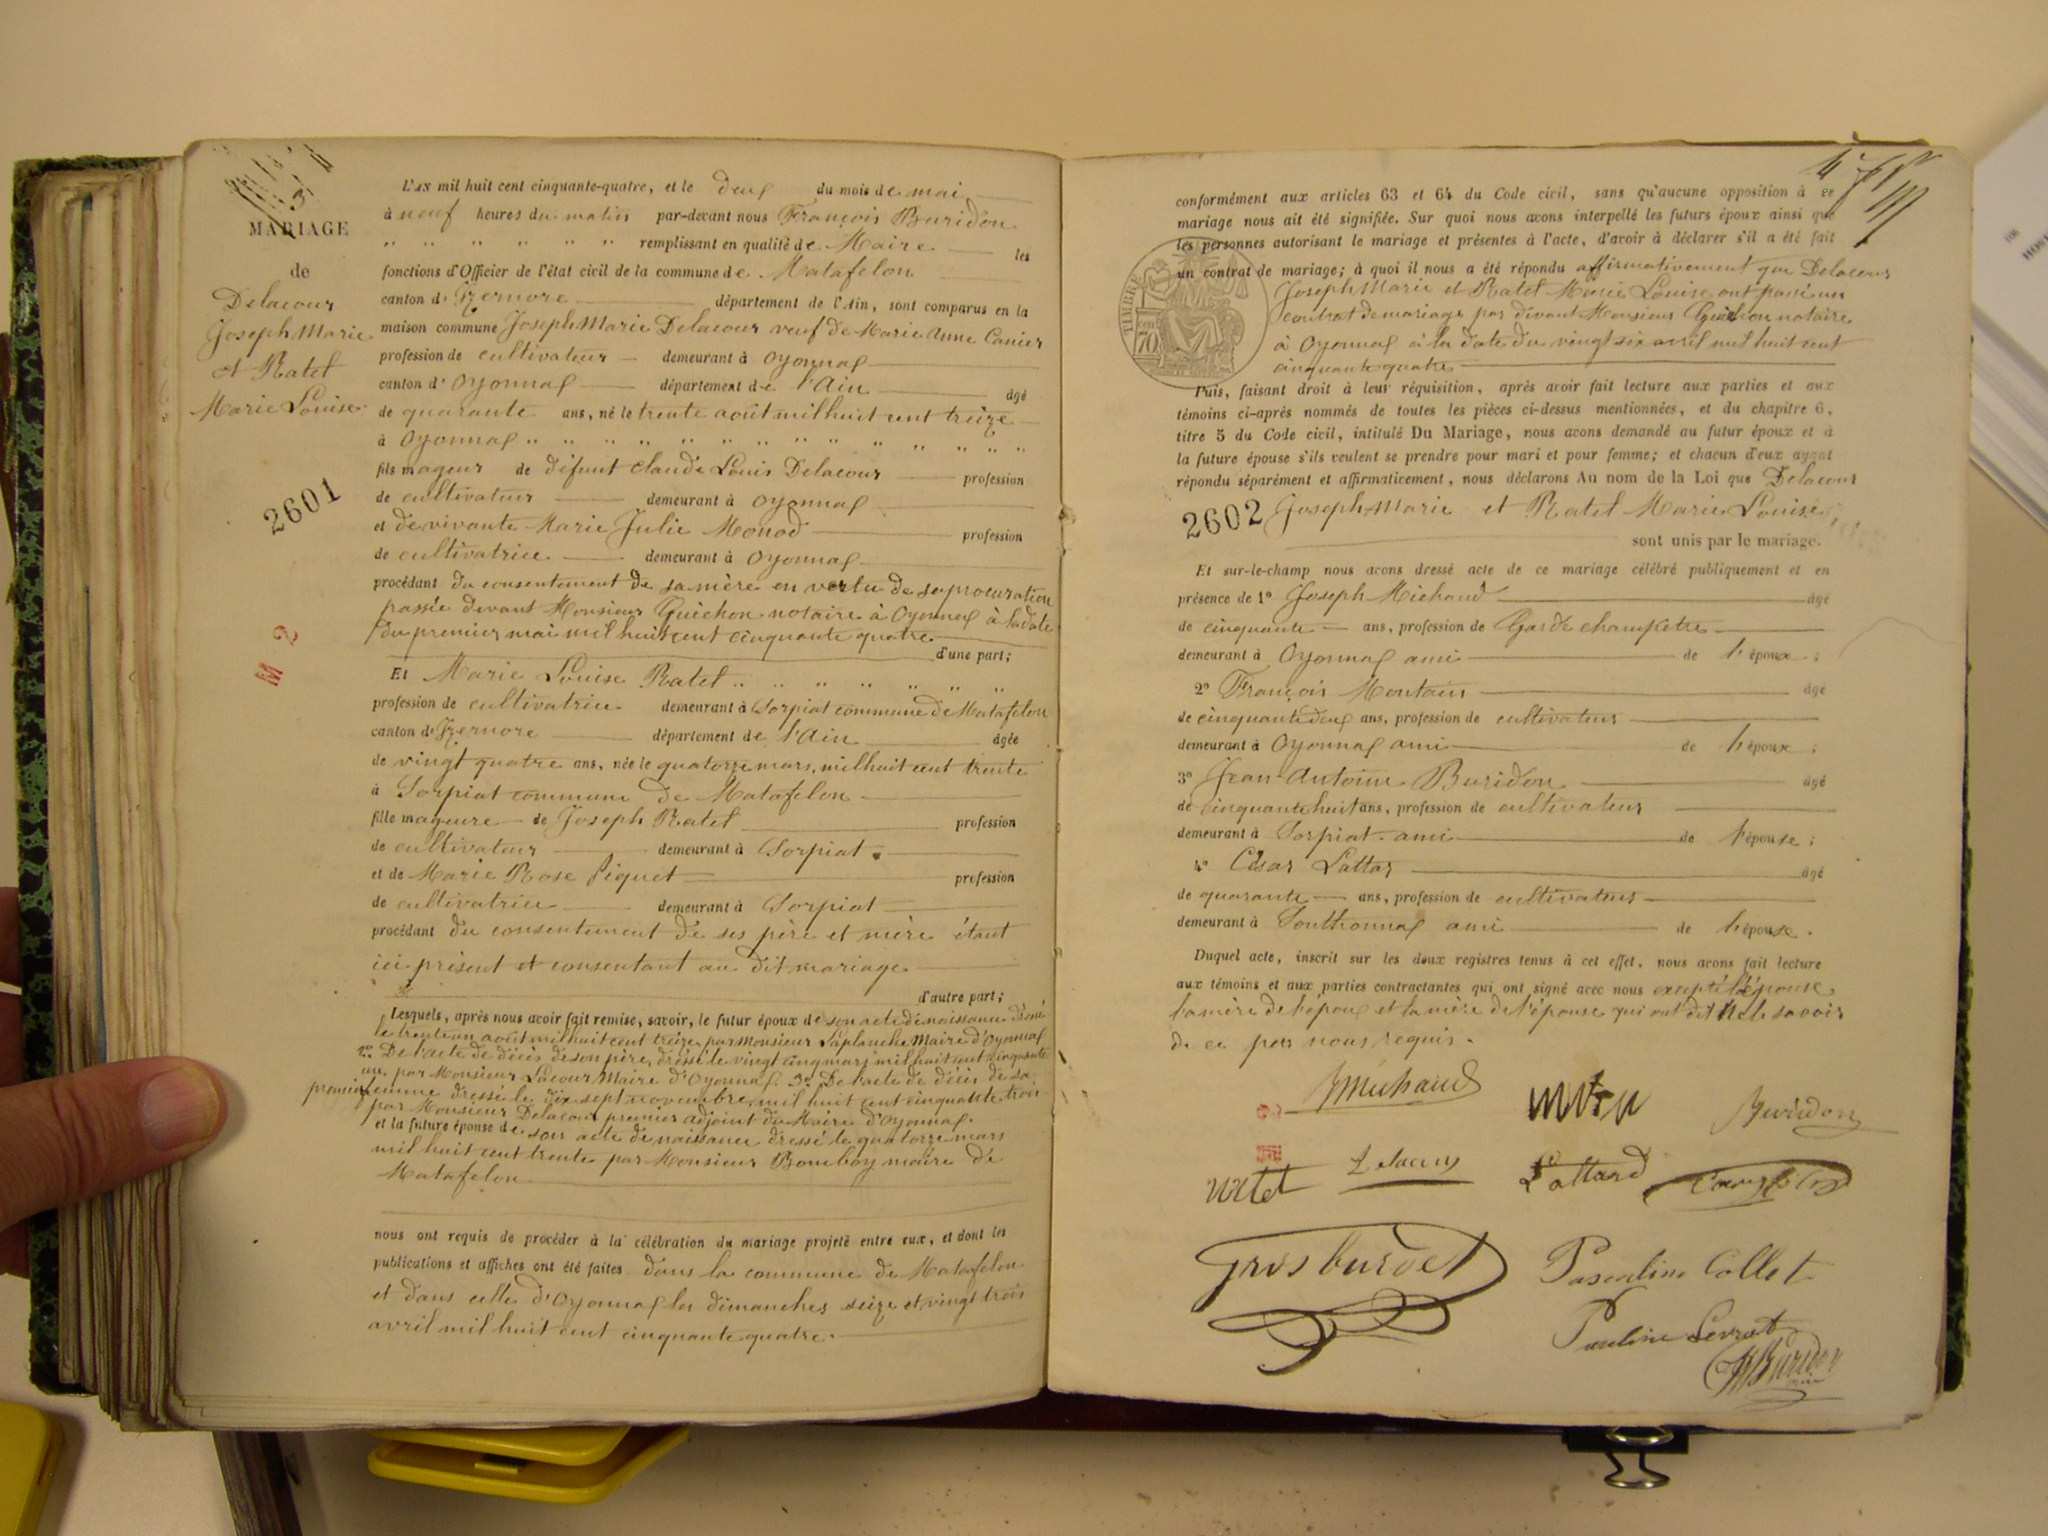 3
MARIAGE
de
Delacour
Joseph Marie
et Ratet
Marie Louise
2601
M 2
L'AN mil huit cent cinquante-quatre, et le deux du mois de mai
à neuf heures du matin par-devant nous François Buridon
" " " " " " remplissant en qualité de Maire les
fonctions d'Officier de l'état civil de la commune de Matafelon
canton d'Izernore département de l'Ain, sont comparus en la
maison commune Joseph Marie Delacour veuf de Marie Anne Canier
profession de cultivateur demeurant à Oyonnax
canton d'Oyonnax département de l'Ain âgé
de quarante ans, né le trente août mil huit cent treize
à Oyonnax " " " " " " " " " " " " "
fils mageur de défunt Claude Louis Delacour profession
de cultivateur demeurant à Oyonnax
et de vivante Marie Julie Monod profession
de cultivatrice demeurant à Oyonnax
procédant du consentement de sa mère en vertu de sa procuration
passée devant Monsieur Guichon notaire à Oyonnax à la date
du premier mai mil huit cent cinquante quatre
d'une part;
Et Marie Louise Ratet " " " " " " "
profession de cultivatrice demeurant à Sorpiat commune de Matafelon
canton d'Izernore département de l'Ain âgée
de vingt quatre ans, née le quatorze mars, mil huit cent trente
à Sorpiat commune de Matafelon
fille mageure de Joseph Ratet profession
de cultivateur demeurant à Sorpiat
et de Marie Rose Piquet profession
de cultivatrice demeurant à Sorpiat
procédant du consentement de ses père et mère étant
ici présent et consentant au dit mariage
d'autre part;
Lesquels, après nous avoir fait remise, savoir, le futur époux de son acte de naissance dressé
le trente un août mil huit cent treize par Monsieur Laplanche Maire d'Oyonnax
2° De l'acte de décès de son père, dressé le vingt cinq mars mil huit cent cinquante
un par Monsieur Lacour Maire d'Oyonnax. 3° De l'acte de décès de sa
premièr femme dressé le dix sept novembre mil huit cent cinquante trois
par Monsieur Delacour premier adjoint du Maire d'Oyonnax.
et la future épouse de son acte de naissance dressé le quatorze mars
mil huit cent trente par Monsieur Bomboy maire de
Matafelon
nous ont requis de procéder à la célébration du mariage projeté entre eux, et dont les
publications et affiches ont été faites dans la commune de Matafelon
et dans celle d'Oyonnax les dimanches seize et vingt trois
avril mil huit cent cinquante quatre.
conformément aux articles 63 et 64 du Code civil, sans qu'aucune opposition à ce
mariage nous ait été signifiée. Sur quoi nous avons interpellé les futurs époux ainsi que
les personnes autorisant le mariage et présentes à l'acte, d'avoir à déclarer s'il a été fait
un contrat de mariage; à quoi il nous a été répondu affirmativement que Delacour
Joseph Marie et Ratet Marie Louise ont passé un
contrat de mariage par divant Monsieur Guichon notaire
à Oyonnax à la date du vingt six avril mil huit cent
cinquante quatre
TIMBRE
70
Puis, faisant droit à leur réquisition, après avoir fait lecture aux parties et aux
témoins ci-après nommés de toutes les pièces ci-dessus mentionnées, et du chapitre 6,
titre 5 du Code civil, intitulé Du Mariage, nous avons demandé au futur époux et à
la future épouse s'ils veulent se prendre pour mari et pour femme; et chacun d'eux ayant
répondu séparément et affirmativement, nous déclarons Au nom de la Loi que Delacour
2602 Joseph Marie et Ratet Marie Louise
sont unis par le mariage.
Et sur-le-champ nous avons dressé acte de ce mariage célébré publiquement et en
présence de 1° Joseph Michaud âgé
de cinquante ans, profession de Garde champetre
demeurant à Oyonnax ami de l'époux;
2° François Montain âgé
de cinquante deux ans, profession de cultivateur
demeurant à Oyonnax ami de l'époux;
3° Jean Antoine Buridon âgé
de cinquante huit ans, profession de cultivateur
demeurant à Sorpiat ami de l'épouse;
4° César Lattar âgé
de quarante ans, profession de cultivateur
demeurant à Southonnax ami de l'épouse.
Duquel acte, inscrit sur les deux registres tenus à cet effet, nous avons fait lecture
aux témoins et aux parties contractantes qui ont signé avec nous excepté l'épouse
la mère de l'époux et la mère de l'épouse qui ont dit ne le savoir
de ce par nous requis.
Michaud
Buridon
ratet Delacour Lattard
Grosburdet Pascaline Collet
Pauline Levrat
Buridon